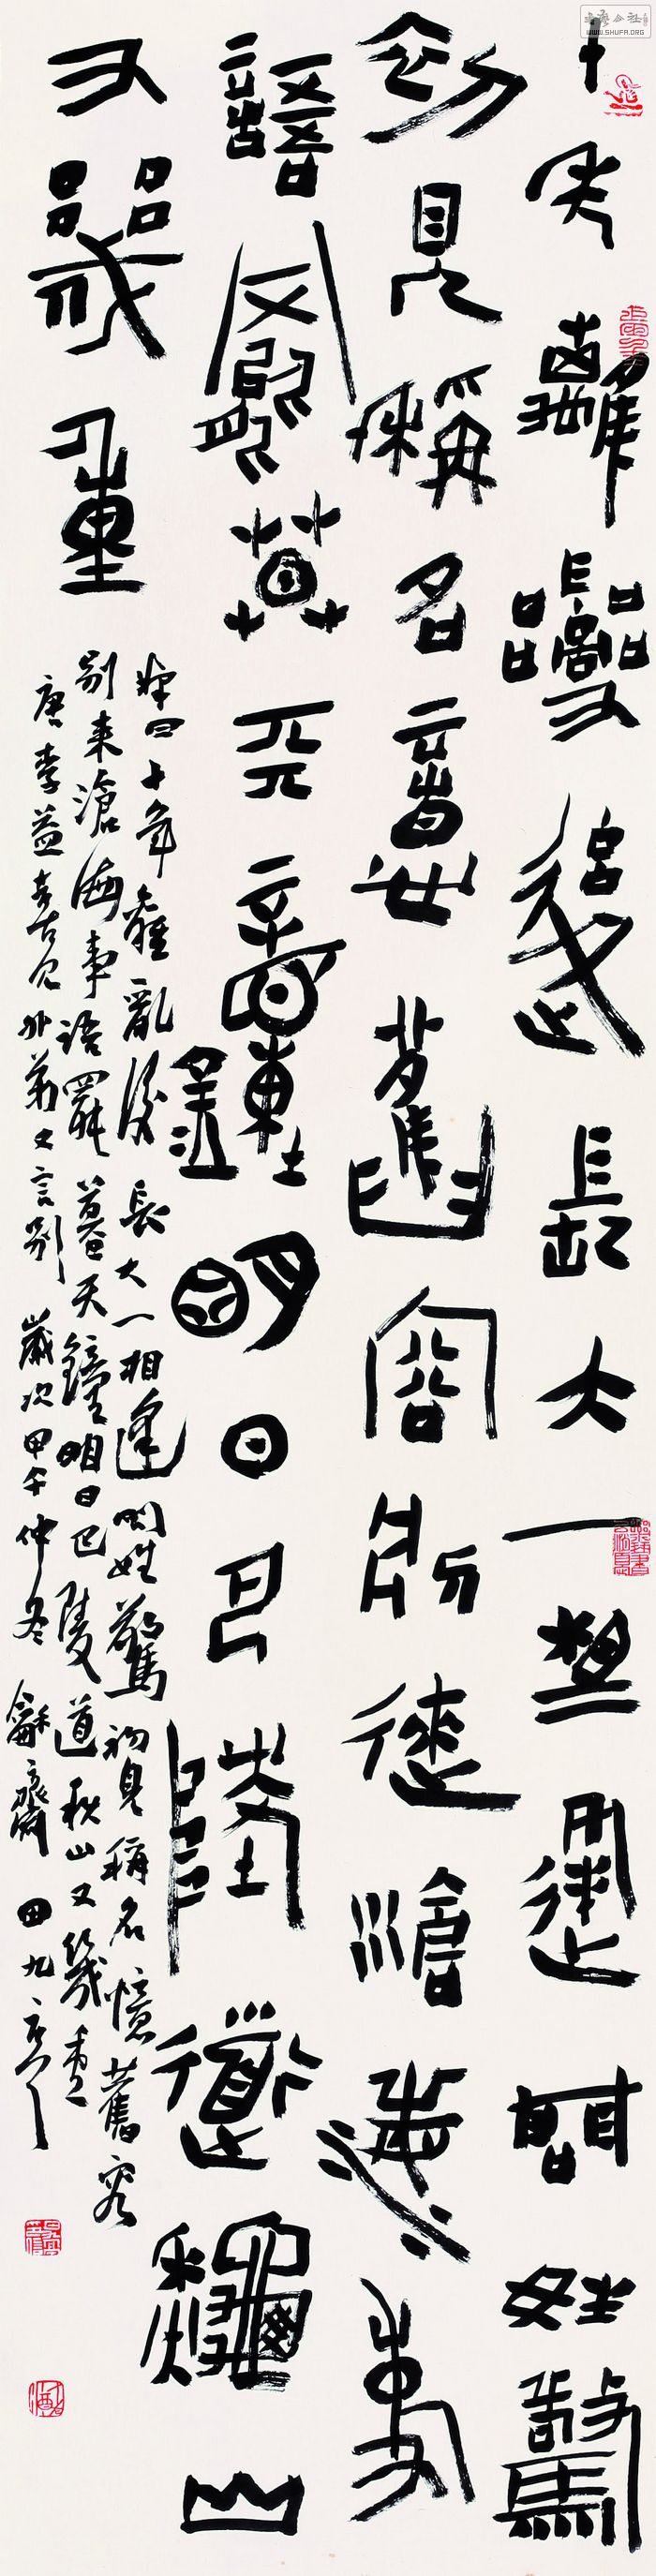 十年離亂後長大一相逢問姓驚
初見稱名憶舊容別來滄海事
語罷暮天鐘明日巴陵道秋山
又幾重
釋曰十年離亂後長大一相逢問姓驚初見稱名憶舊容
別來滄海事語罷暮天鐘明日巴陵道秋山又幾重
唐李益喜見外弟又言別歲次甲午仲冬龢齋田九
WWW.SHUFA.ORG